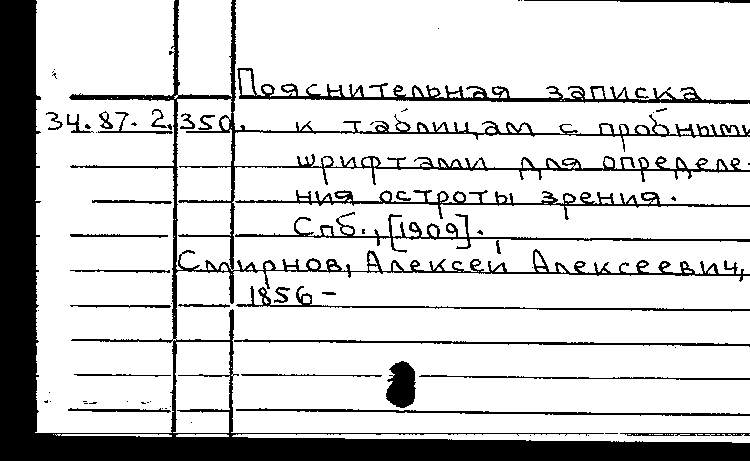 Пояснительная записка
34.87.2.350. к таблицам с пробными
шрифтами для определе-
ния остроты зрения.
Спб., [1909].,
Смирнов, Алексей Алексеевич,
1856-